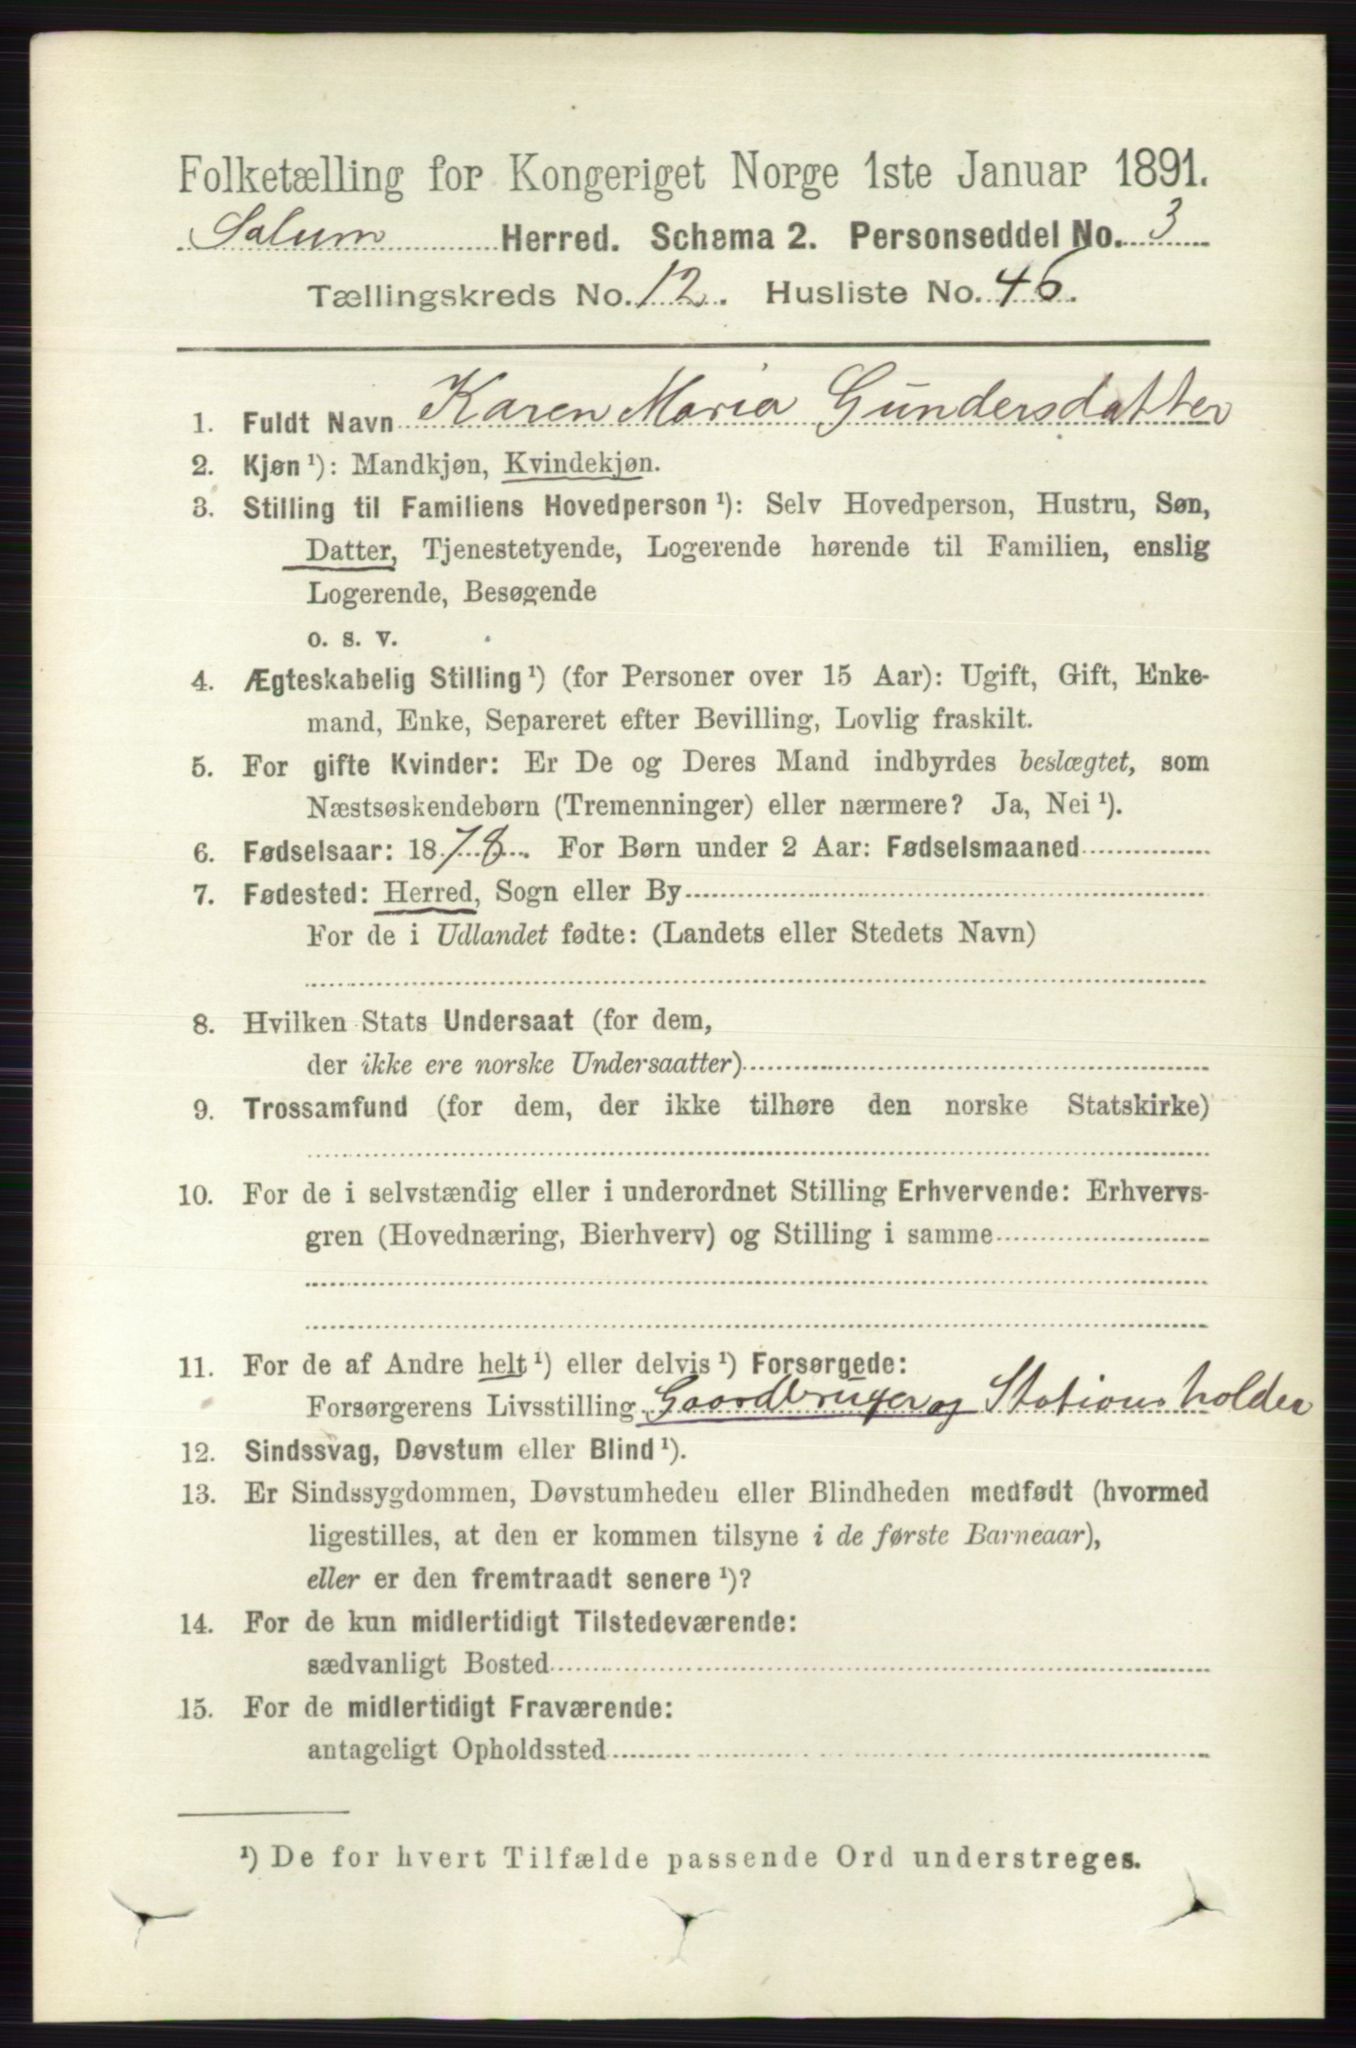 Folketælling for Kongeriget Norge 1ste Januar 1891.
Solum Herred. Schema 2. Personseddel No. 3
Tællingskreds No. 12. Husliste No. 46.
1. Fuldt Navn Karen Maria Gundersdatter
2. Kjøn ¹): Mandkjøn, Kvindekjøn.
3. Stilling til Familiens Hovedperson ¹): Selv Hovedperson, Hustru, Søn,
Datter, Tjenestetyende, Logerende hørende til Familien, enslig
Logerende, Besøgende
o. s. v.
4. Ægteskabelig Stilling ¹) (for Personer over 15 Aar): Ugift, Gift, Enke-
mand, Enke, Separeret efter Bevilling, Lovlig fraskilt.
5. For gifte Kvinder: Er De og Deres Mand indbyrdes beslægtet, som
Næstsøskendebørn (Tremenninger) eller nærmere? Ja, Nei ¹).
6. Fødselsaar: 1878. For Børn under 2 Aar: Fødselsmaaned
7. Fødested: Herred, Sogn eller By
For de i Udlandet fødte: (Landets eller Stedets Navn)
8. Hvilken Stats Undersaat (for dem,
der ikke ere norske Undersaatter)
9. Trossamfund (for dem, der ikke tilhøre den norske Statskirke)
10. For de i selvstændig eller i underordnet Stilling Erhvervende: Erhvervs-
gren (Hovednæring, Bierhverv) og Stilling i samme
11. For de af Andre helt ¹) eller delvis ¹) Forsørgede:
Forsørgerens Livsstilling Gaardbruger og Stationsholder
12. Sindssvag, Døvstum eller Blind ¹).
13. Er Sindssygdommen, Døvstumheden eller Blindheden medfødt (hvormed
ligestilles, at den er kommen tilsyne i de første Barneaar),
eller er den fremtraadt senere ¹)?
14. For de kun midlertidigt Tilstedeværende:
sædvanligt Bosted
15. For de midlertidigt Fraværende:
antageligt Opholdssted
¹) De for hvert Tilfælde passende Ord understreges.